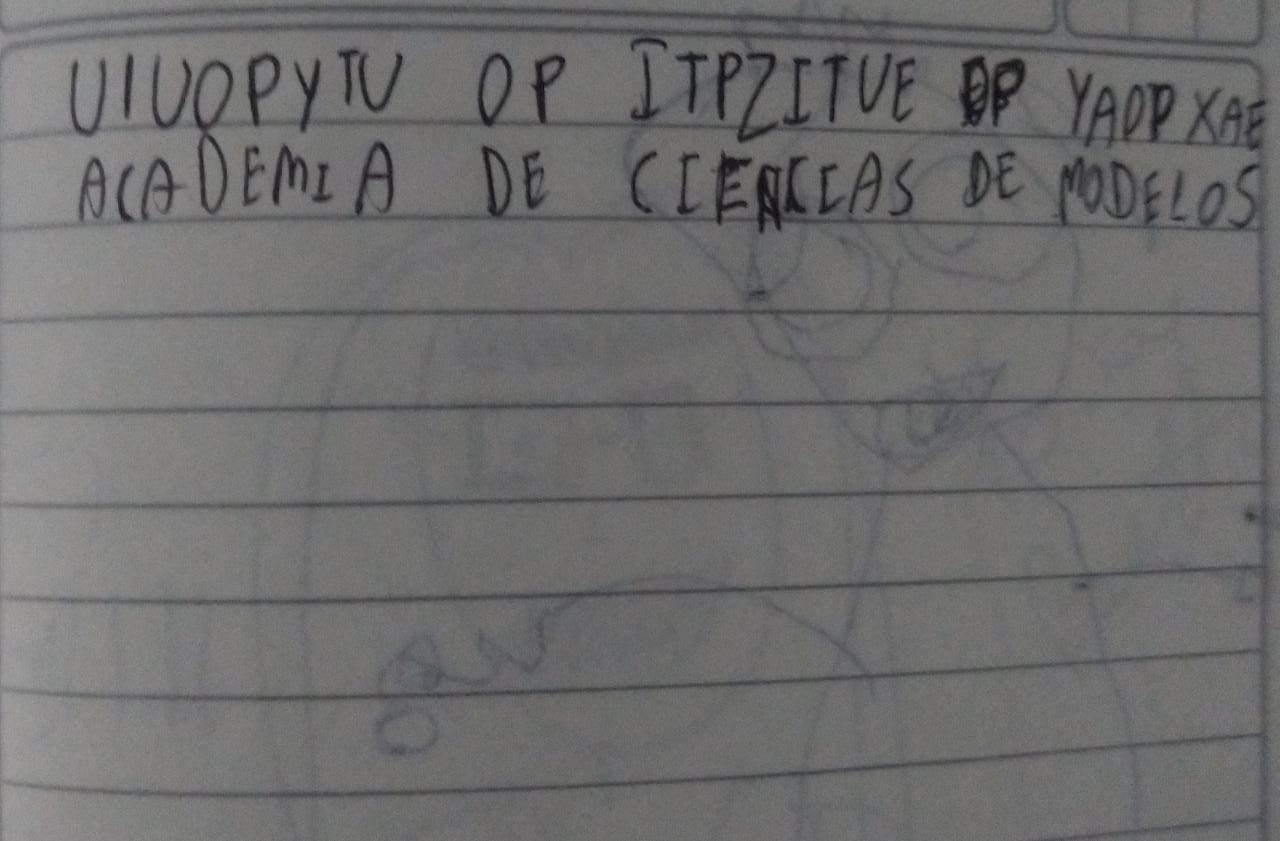 UIUOPYTU OP ITPZITUE OP YAOPXAE
ACADEMIA DE CIENCIAS DE MODELOS